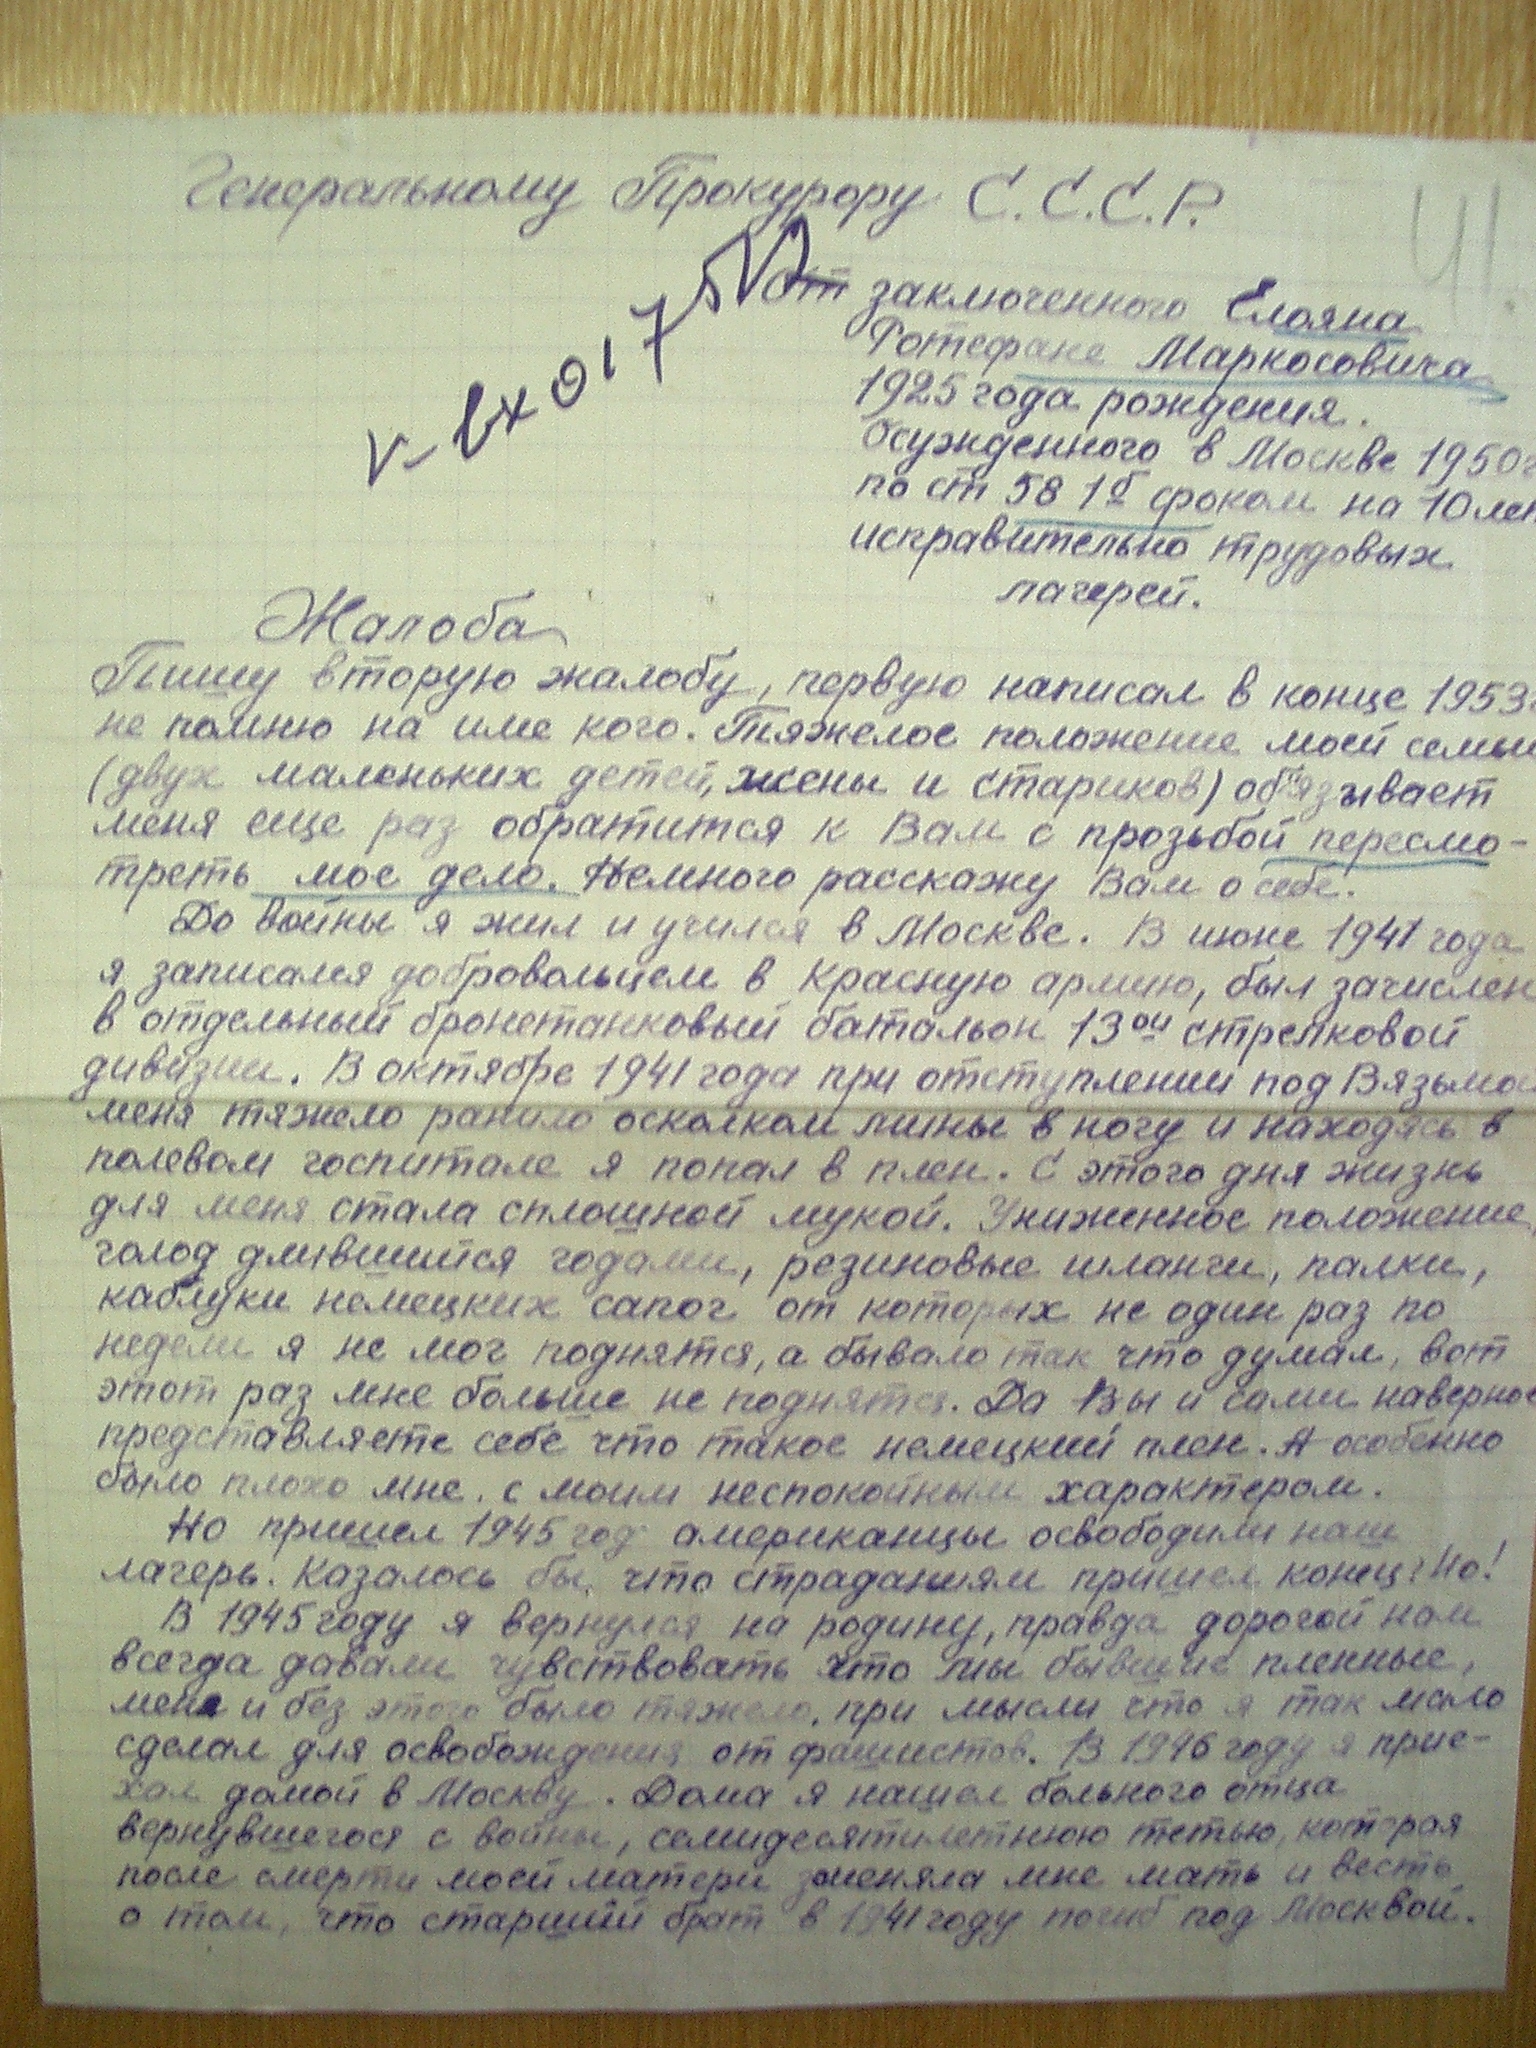 Генеральному Прокурору С.С.С.Р.
41
от заключенного Елояна
Ротефане Маркосовича
1925 года рождения.
Осужденного в Москве 1950г
по ст 58 1б сроком на 10 лет
исправительно трудовых
лагерей.
Жалоба
Пишу вторую жалобу, первую написал в конце 1953г
не помню на име кого. Тяжелое положение моей семьи
(двух маленьких детей, жены и стариков) обязывает
меня еще раз обратится к Вам с прозьбой пересмо-
треть мое дело. Немного расскажу Вам о себе.
До войны я жил и учился в Москве. В июне 1941 года
я записался добровольцем в Красную армию, был зачислен
в отдельный бронетанковый батальон 13ой стрелковой
дивизии. В октябре 1941 года при отступлении под Вязьмой
меня тяжело ранило осколком мины в ногу и находясь в
полевом госпитале я попал в плен. С этого дня жизнь
для меня стала сплошной мукой. Униженное положение,
голод длившийся годами, резиновые шланги, палки,
каблуки немецких сапог от которых не один раз по
недели я не мог поднятся, а бывало так что думал, вот
этот раз мне больше не поднятся. Да Вы и сами наверное
представляете себе что такое немецкий плен. А особенно
было плохо мне. с моим неспокойным характером.
Но пришел 1945 год американцы освободили наш
лагерь. Казалось бы, что страданиям пришел конец? Но!
В 1945 году я вернулся на родину, правда дорогой нам
всегда давали чувствовать что мы бывшие пленные,
мене и без этого было тяжело, при мысли что я так мало
сделал для освобождения от фашистов. В 1946 году я прие-
хал домой в Москву. Дома я нашел больного отца
вернувшегося с войны, семидесятилетнюю тетью, которая
после смерти моей матери заменяла мне мать и весть
о том, что старший брат в 1941 году погиб под Москвой.